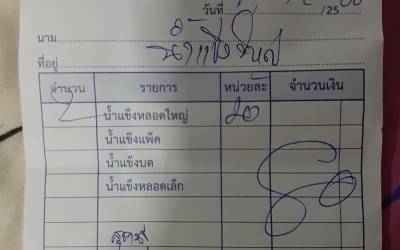 วันที่ /25
นาม
ที่อยู่
จำนวน รายการ หน่วยละ จำนวนเงิน
2 น้ำแข็งหลอดใหญ่ 40
น้ำแข็งแพ็ค
น้ำแข็งบด
น้ำแข็งหลอดเล็ก
80